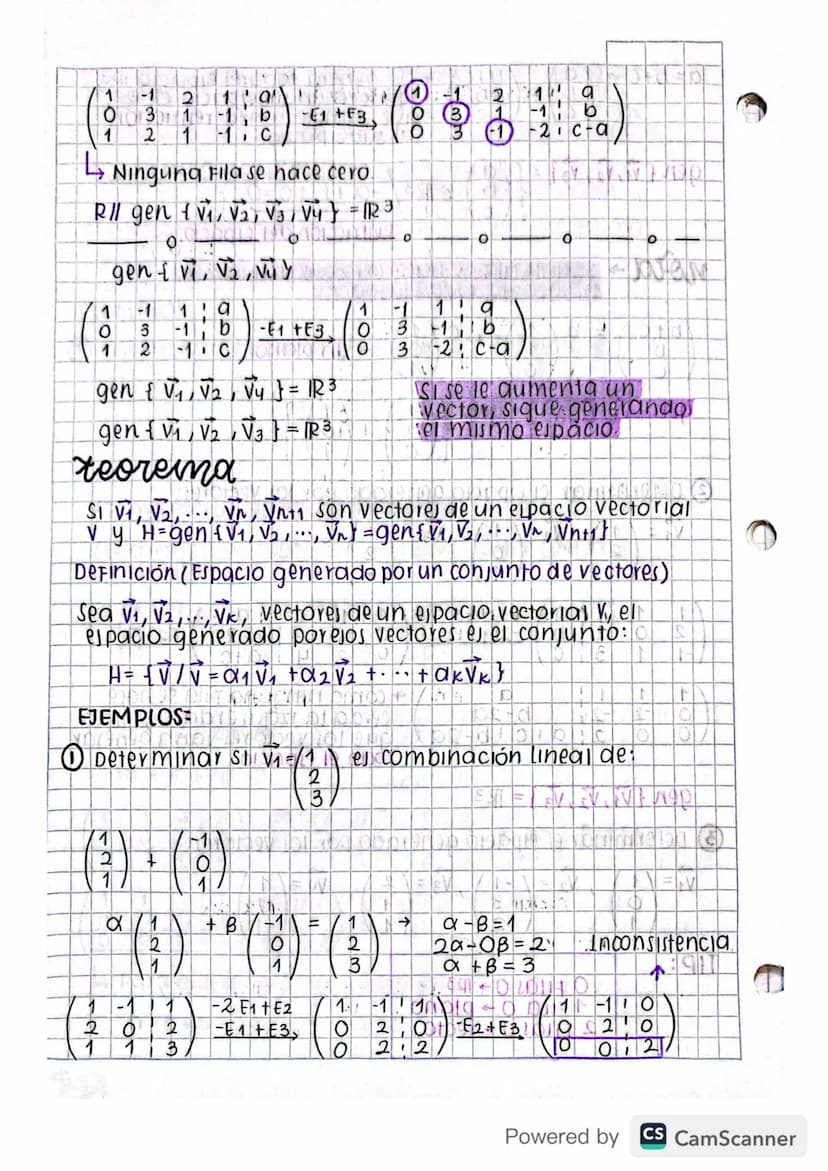 ( 1 -1 2 1 ¦ a ) ( 1 -1 2 1 ¦ a )
( 0 3 1 -1 ¦ b ) -E1 +E3 → ( 0 3 1 -1 ¦ b )
( 1 2 1 -1 ¦ c ) ( 0 3 -1 -2 ¦ c-a )
↳ Ninguna Fila se hace cero.
R// gen { v⃗1, v⃗2, v⃗3, v⃗4 } = ℝ³
gen { v⃗1, v⃗2, v⃗4 }
( 1 -1 1 ¦ a ) ( 1 -1 1 ¦ a )
( 0 3 -1 ¦ b ) -E1 +E3 → ( 0 3 -1 ¦ b )
( 1 2 -1 ¦ c ) ( 0 3 -2 ¦ c-a )
gen { v⃗1, v⃗2, v⃗4 } = ℝ³
gen { v⃗1, v⃗2, v⃗3 } = ℝ³
Si se le aumenta un
vector, sigue generando
el mismo espacio.
teorema
Si v⃗1, v⃗2, ..., v⃗n, v⃗n+1 son vectores de un espacio vectorial
V y H=gen {v⃗1, v⃗2, ..., v⃗n} = gen{v⃗1, v⃗2, ..., v⃗n, v⃗n+1}
Definición (Espacio generado por un conjunto de vectores)
Sea v⃗1, v⃗2, ..., v⃗k, vectores de un espacio vectorial V, el
espacio generado por esos vectores es el conjunto:
H= {v⃗ / v⃗ = α1 v⃗1 + α2 v⃗2 + ... + αk v⃗k}
EJEMPLOS:
① Determinar si v⃗1 = ( 1 ) es combinación lineal de:
( 2 )
( 3 )
( 1 ) ( -1 )
( 2 ) + ( 0 )
( 1 ) ( 1 )
α ( 1 ) + β ( -1 ) = ( 1 ) → α - β = 1
( 2 ) ( 0 ) ( 2 ) 2α - 0β = 2 Inconsistencia
( 1 ) ( 1 ) ( 3 ) α + β = 3 ↑
( 1 -1 ¦ 1 ) -2 E1 + E2 ( 1 -1 ¦ 1 ) ( 1 -1 ¦ 0 )
( 2 0 ¦ 2 ) -E1 +E3 → ( 0 2 ¦ 0 ) -E2 + E3 → ( 0 2 ¦ 0 )
( 1 1 ¦ 3 ) ( 0 2 ¦ 2 ) ( 0 0 ¦ 2 )
Powered by CS CamScanner